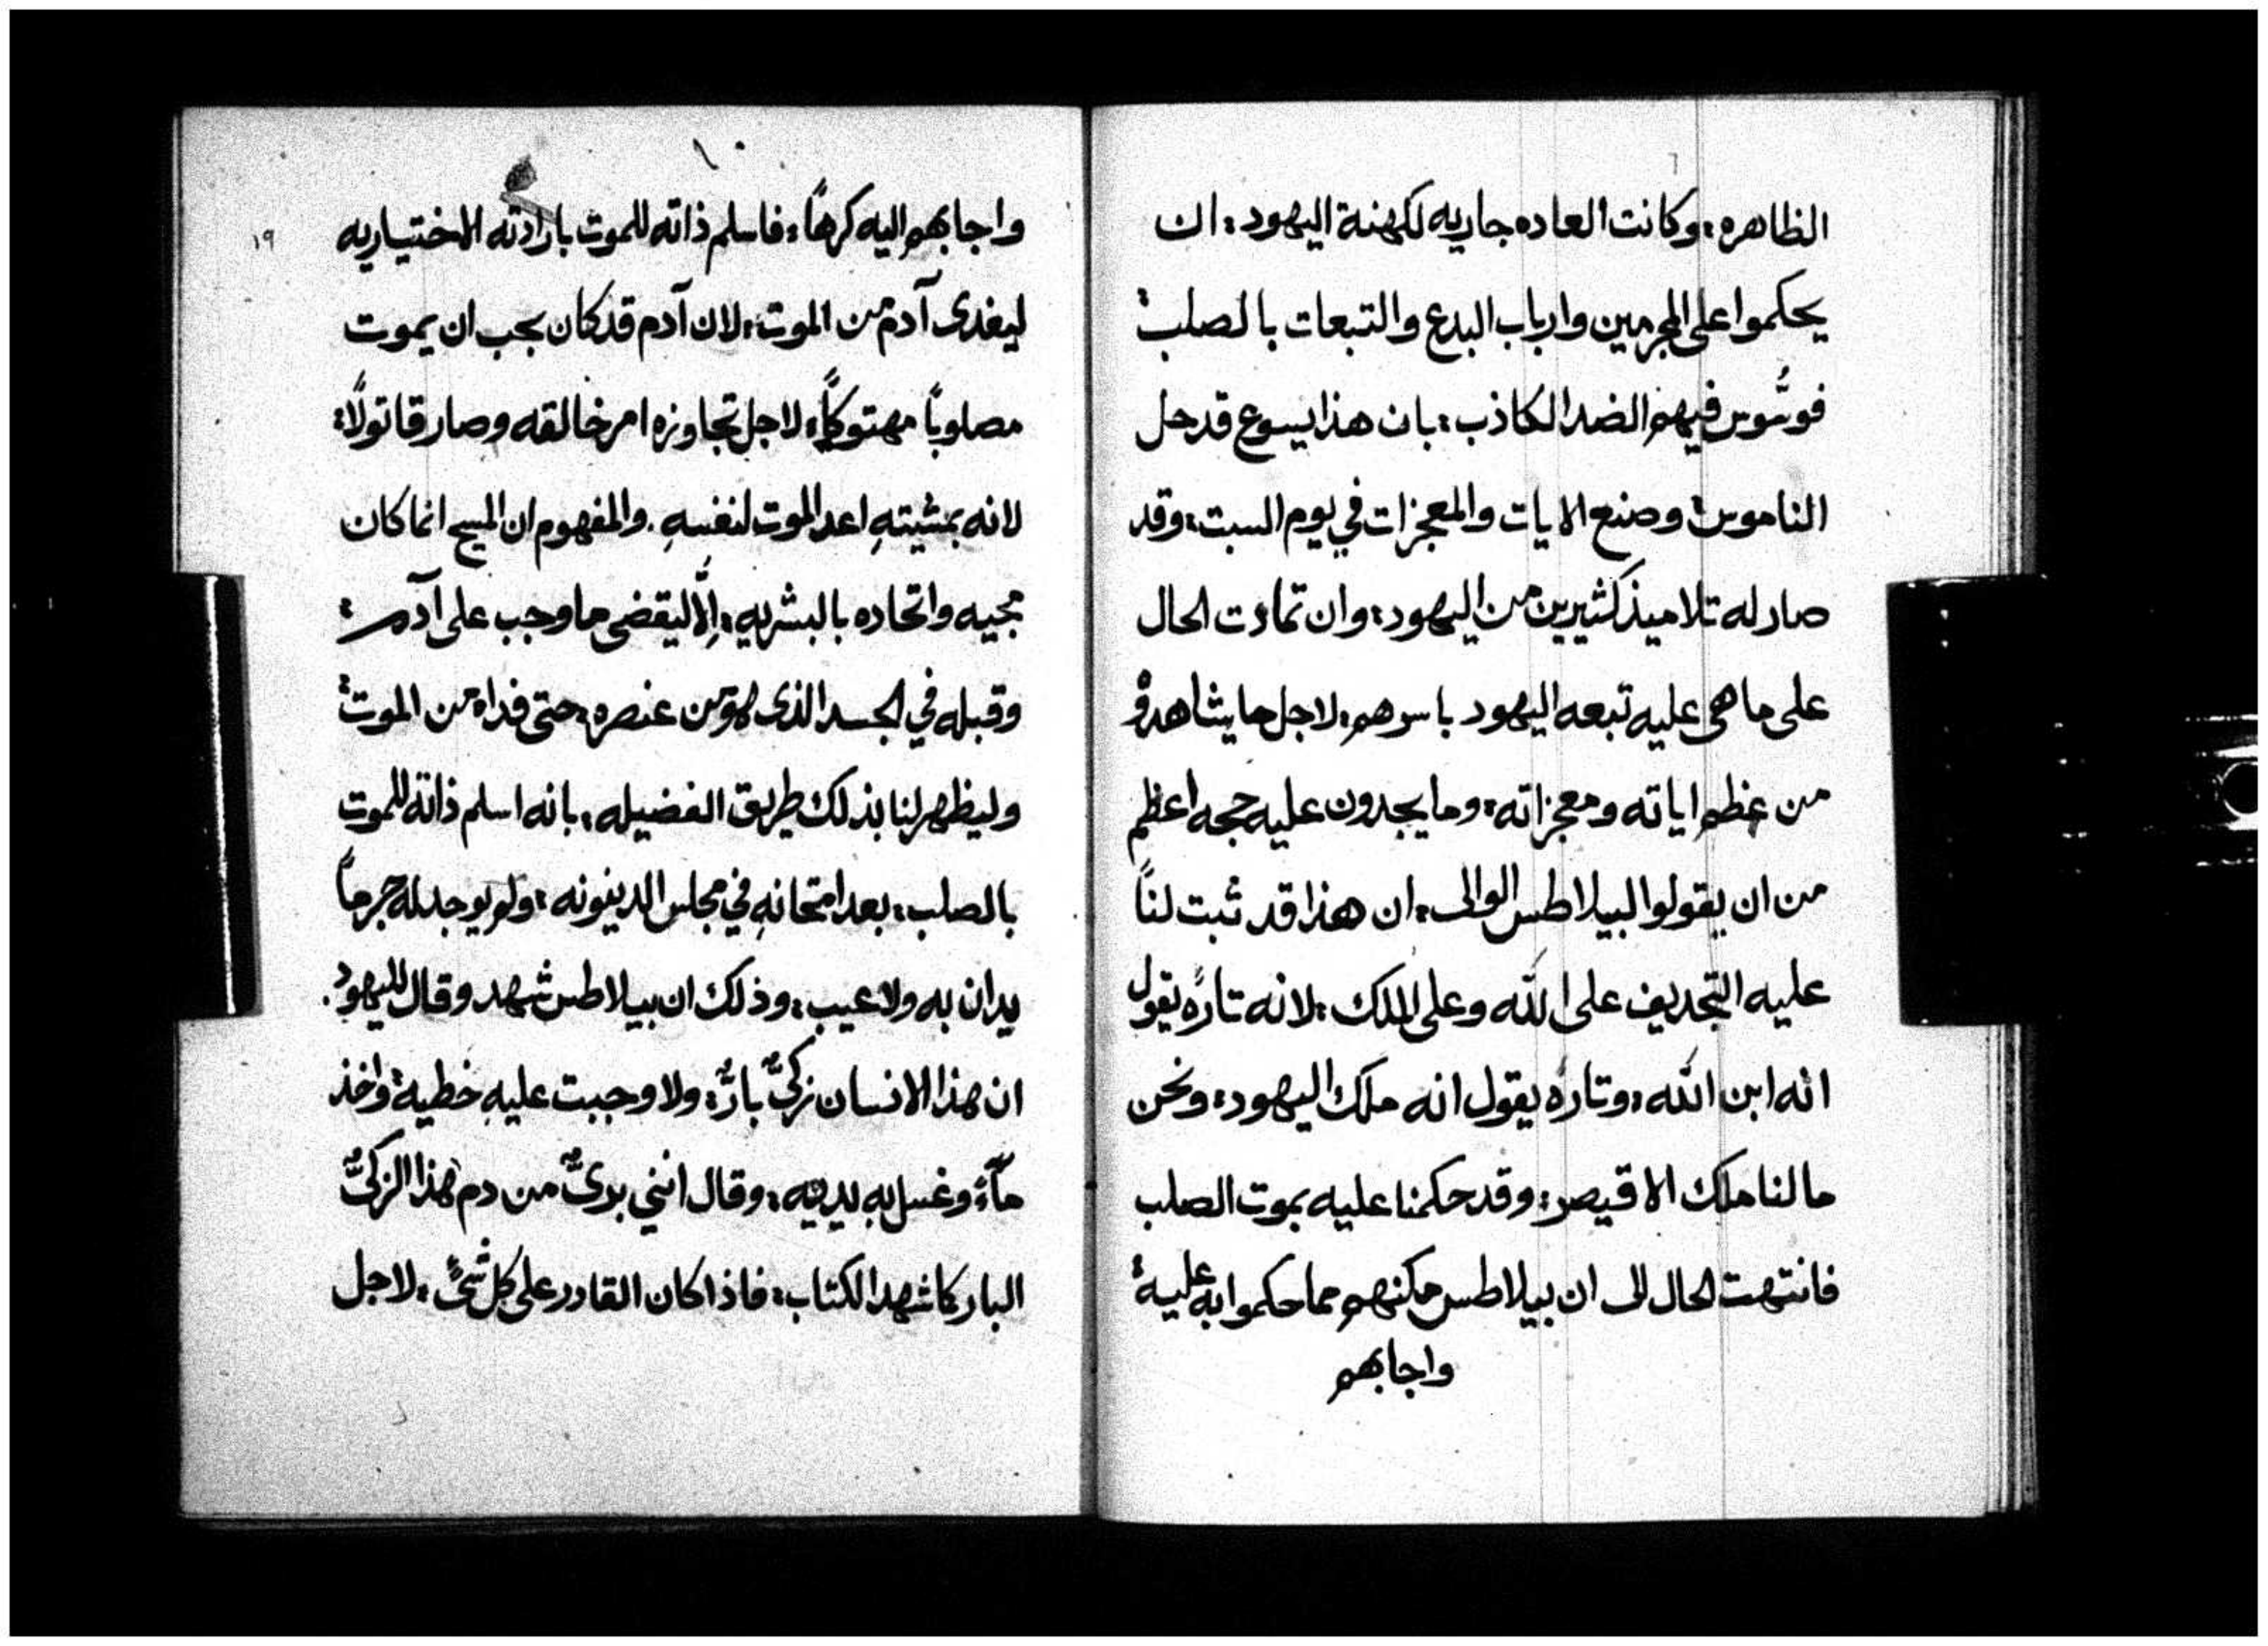 الظاهره: وكانت العاده جاريه لكهنة اليهود: ان
يحكموا على المجرمين وارباب البدع والتبعات بالصلب:
فوسُّوس فيهم الضد الكاذب: بان هذا يسوع قد حل
الناموس: وصنع الايات والمعجزات في يوم السبت: وقد
صار له تلاميذ كثيرين من اليهود: وان تمادت الحال
على ما هى عليه تبعه اليهود باسرهم: لاجل ما يشاهدوُ
من عظم اياته ومعجزاته: وما يجدون عليه حجه اعظم
من ان يقولوا لبيلاطس الوالى: ان هذا قد ثبت لنا
عليه التجديف على الله وعلى الملك: لانه تارةً يقول
انه ابن الله: وتاره يقول انه ملك اليهود: ونحن
ما لنا ملك الا قيصر: وقد حكمنا عليه بموت الصلب
فانتهت الحال الى ان بيلاطس مكنهم مما حكموا به عليه:
واجابهم
١٩
واجابهم اليه كرهاً: فاسلم ذاته للموت بارادته الاختياريه
ليفدى آدم من الموت: لان آدم قد كان يجب ان يموت
مصلوباً مهتوكاً: لاجل تجاوزه امر خالقه وصار قاتولاً:
لانه بمشيتهِ اعد الموت لنفسهِ. والمفهوم ان المسيح انما كان
مجيه واتحاده بالبشريه: اِلَّا ليقضى ما وجب على آدم:
وقبله في الجسد الذى هو من عنصره: حتى فداه من الموت:
وليظهر لنا بذلك طريق الفضيله: بانه اسلم ذاته للموت
بالصلب: بعد امتحانهِ في مجلس الدينونه: ولم يوجد له جرماً
يدان به ولا عيب: وذلك ان بيلاطس شهد وقال لليهود.
ان هذا الانسان زكىٌّ بارٌّ: ولا وجبت عليهِ خطية: واخذ
مآءً وغسل به يديه: وقال انني برىٌّ من دم هذا الزكىٌّ
البار كما شهد الكتاب: فاذا كان القادر على كل شىً: لاجل